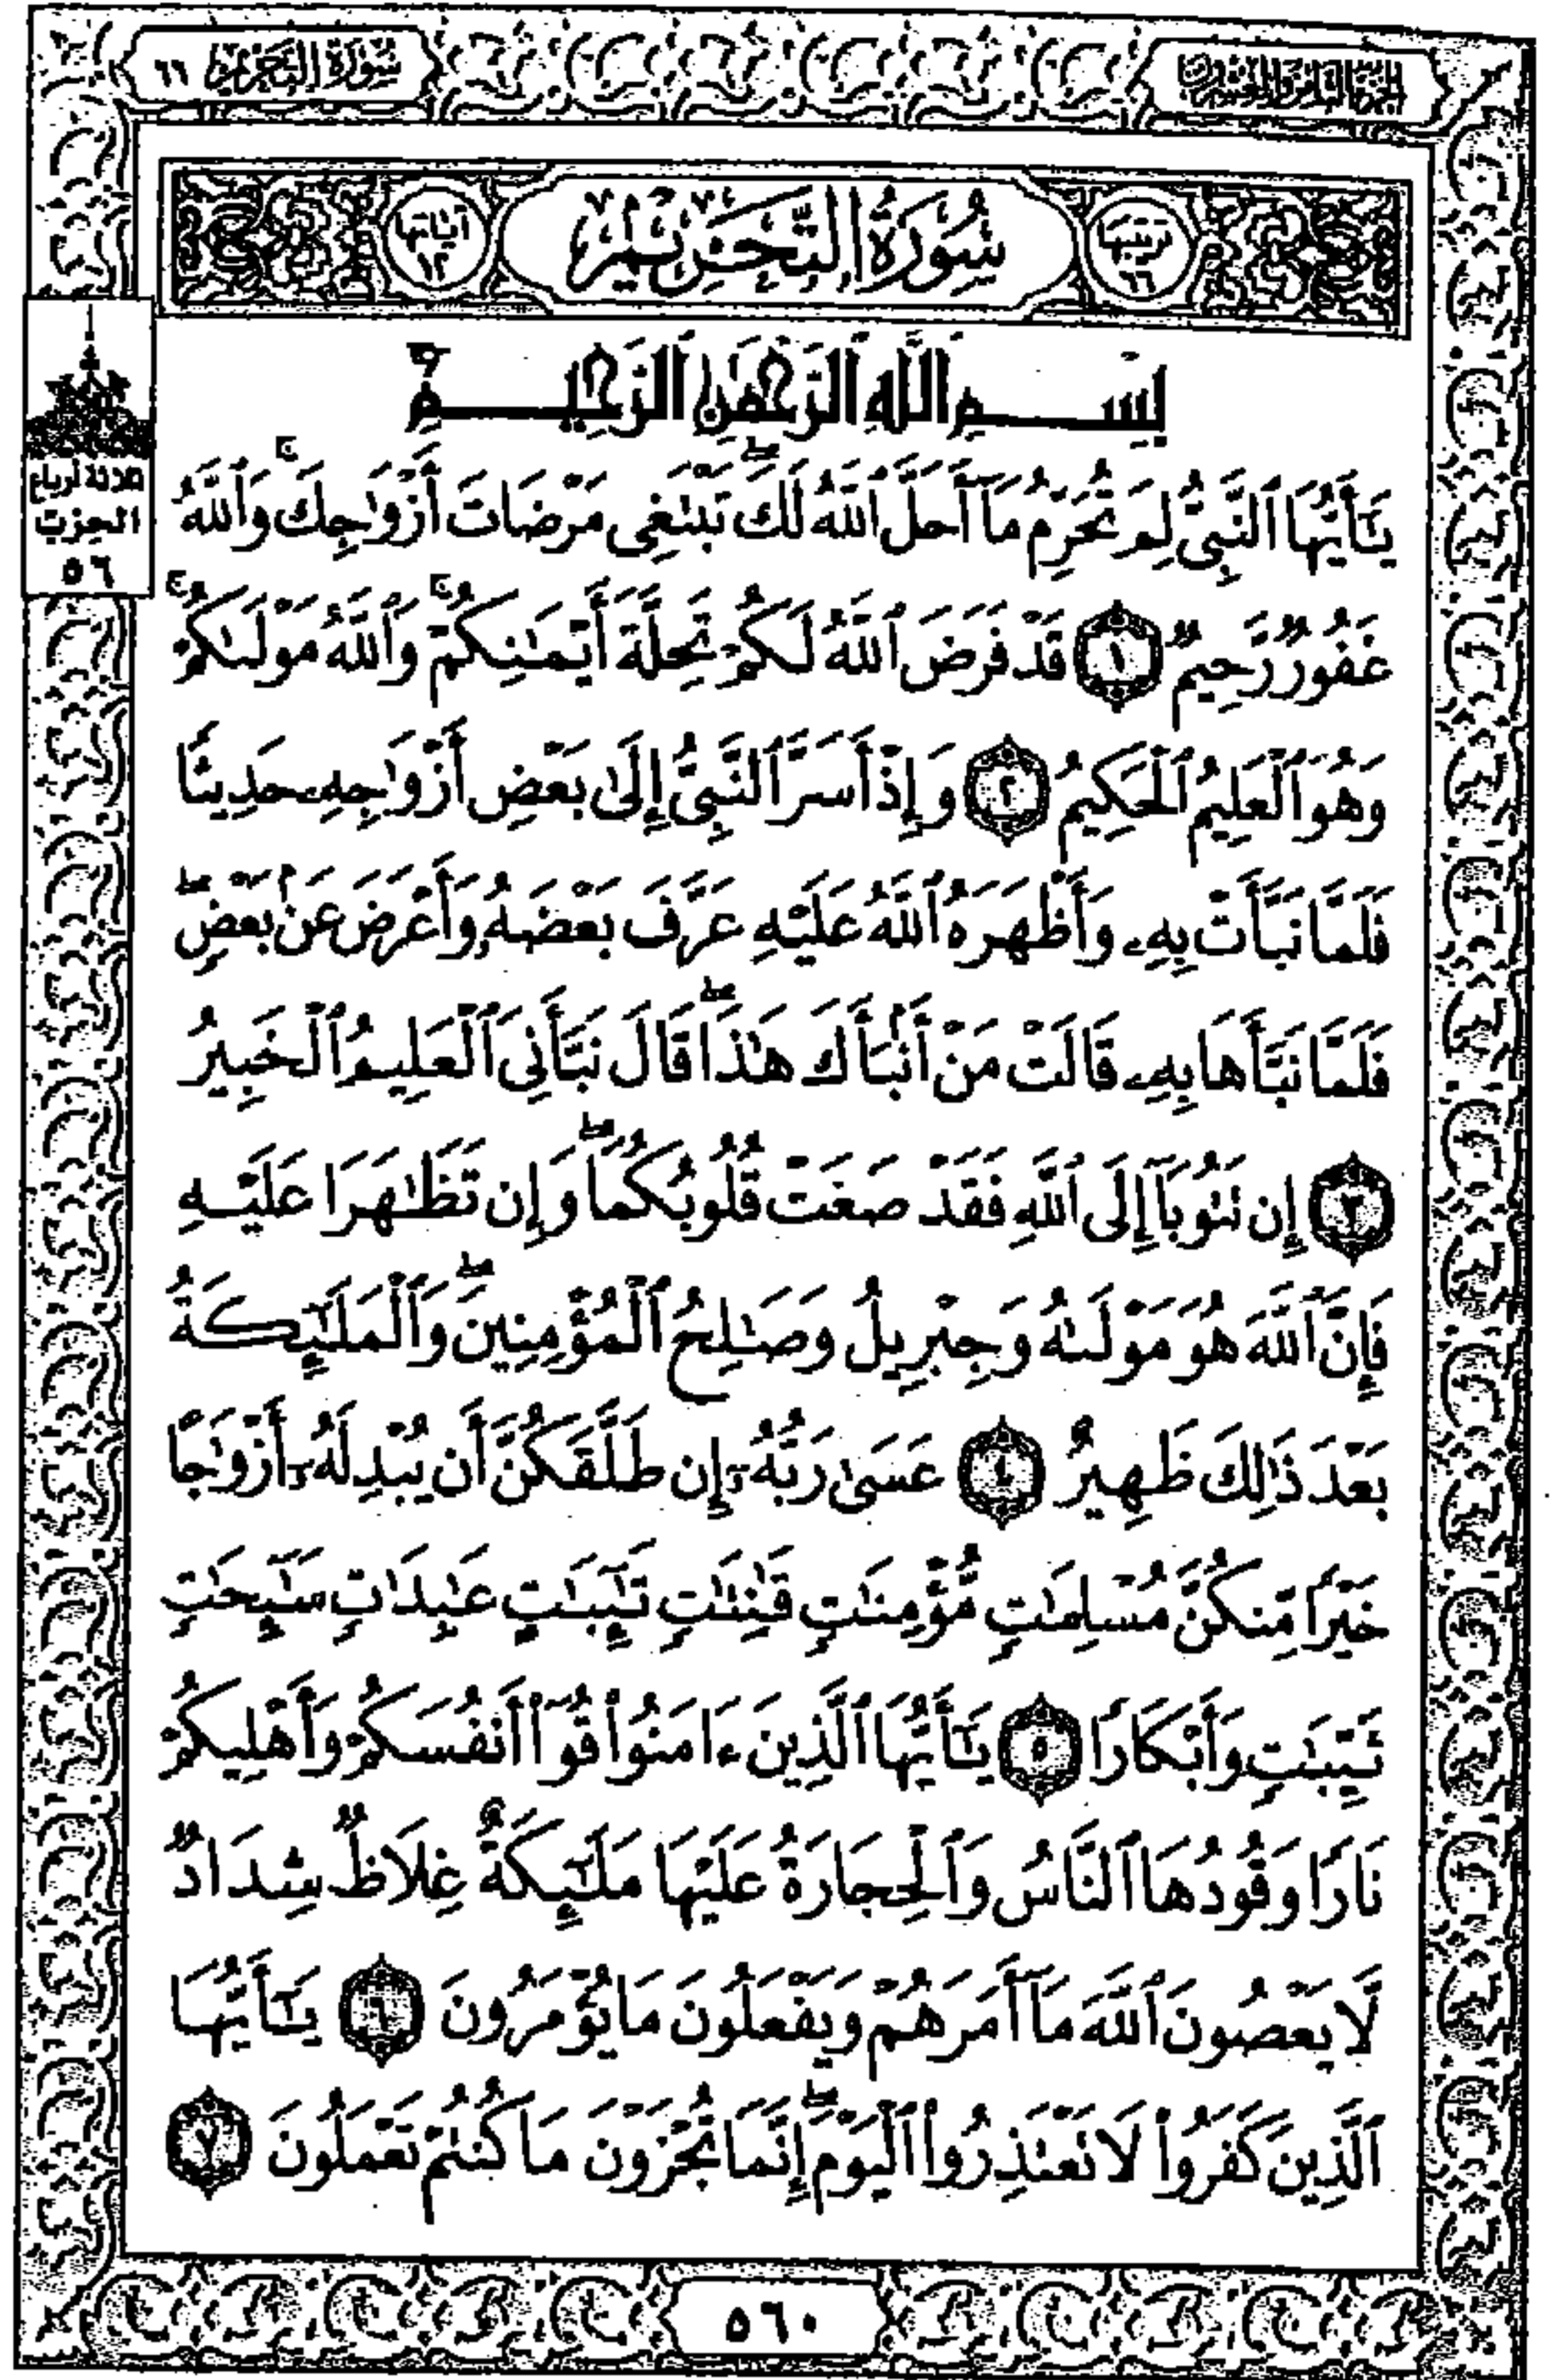 الجزء الثامن والعشرون
سورة التحريم ٦٦
ترتيبها ٦٦
سُورَةُ التَّحْرِيمِ
آياتها ١٢
بِسْمِ ٱللَّهِ ٱلرَّحْمَٰنِ ٱلرَّحِيمِ
يَٰٓأَيُّهَا ٱلنَّبِىُّ لِمَ تُحَرِّمُ مَآ أَحَلَّ ٱللَّهُ لَكَ ۖ تَبْتَغِى مَرْضَاتَ أَزْوَٰجِكَ ۚ وَٱللَّهُ
غَفُورٌ رَّحِيمٌ ١ قَدْ فَرَضَ ٱللَّهُ لَكُمْ تَحِلَّةَ أَيْمَٰنِكُمْ ۚ وَٱللَّهُ مَوْلَىٰكُمْ ۖ
وَهُوَ ٱلْعَلِيمُ ٱلْحَكِيمُ ٢ وَإِذْ أَسَرَّ ٱلنَّبِىُّ إِلَىٰ بَعْضِ أَزْوَٰجِهِۦ حَدِيثًا
فَلَمَّا نَبَّأَتْ بِهِۦ وَأَظْهَرَهُ ٱللَّهُ عَلَيْهِ عَرَّفَ بَعْضَهُۥ وَأَعْرَضَ عَنۢ بَعْضٍ ۖ
فَلَمَّا نَبَّأَهَا بِهِۦ قَالَتْ مَنْ أَنۢبَأَكَ هَٰذَا ۖ قَالَ نَبَّأَنِىَ ٱلْعَلِيمُ ٱلْخَبِيرُ
٣ إِن تَتُوبَآ إِلَى ٱللَّهِ فَقَدْ صَغَتْ قُلُوبُكُمَا ۖ وَإِن تَظَٰهَرَا عَلَيْهِ
فَإِنَّ ٱللَّهَ هُوَ مَوْلَىٰهُ وَجِبْرِيلُ وَصَٰلِحُ ٱلْمُؤْمِنِينَ ۖ وَٱلْمَلَٰٓئِكَةُ
بَعْدَ ذَٰلِكَ ظَهِيرٌ ٤ عَسَىٰ رَبُّهُۥٓ إِن طَلَّقَكُنَّ أَن يُبْدِلَهُۥٓ أَزْوَٰجًا
خَيْرًا مِّنكُنَّ مُسْلِمَٰتٍ مُّؤْمِنَٰتٍ قَٰنِتَٰتٍ تَٰٓئِبَٰتٍ عَٰبِدَٰتٍ سَٰٓئِحَٰتٍ
ثَيِّبَٰتٍ وَأَبْكَارًا ٥ يَٰٓأَيُّهَا ٱلَّذِينَ ءَامَنُوا۟ قُوٓا۟ أَنفُسَكُمْ وَأَهْلِيكُمْ
نَارًا وَقُودُهَا ٱلنَّاسُ وَٱلْحِجَارَةُ عَلَيْهَا مَلَٰٓئِكَةٌ غِلَاظٌ شِدَادٌ
لَّا يَعْصُونَ ٱللَّهَ مَآ أَمَرَهُمْ وَيَفْعَلُونَ مَا يُؤْمَرُونَ ٦ يَٰٓأَيُّهَا
ٱلَّذِينَ كَفَرُوا۟ لَا تَعْتَذِرُوا۟ ٱلْيَوْمَ ۖ إِنَّمَا تُجْزَوْنَ مَا كُنتُمْ تَعْمَلُونَ ٧
ثلاثة أرباع
الحزب
٥٦
٥٦٠